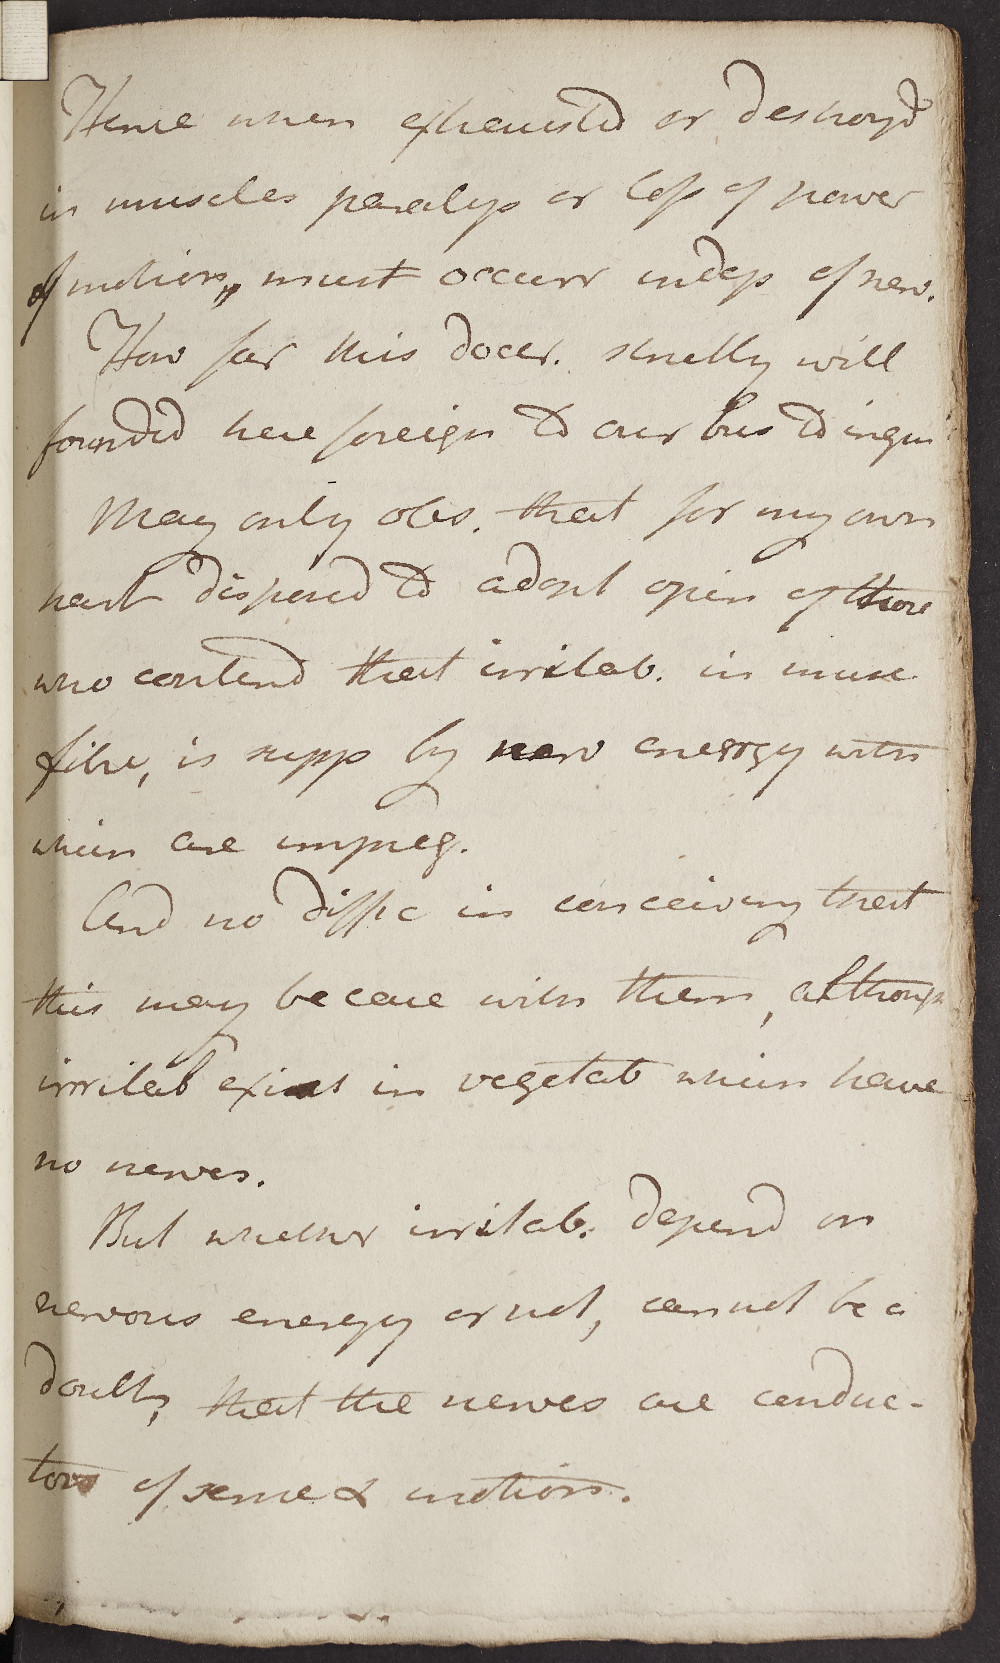 Hence when exhausted or destroyd
in muscles paralys or loss of power
of motion, must occurr indep of nerv.
How far this doctr. strictly will
founded here foreign to our bus to inqui
May only obs. that for my own
part disposed to adopt opin of those
who contend that irritab. in musc
fibre, is supp by nerv energy with
which are impreg.
And no diffic in conceiving that
this may be case with them, although
irritab exist in vegetab which have
no nerves.
But whether irritab. depend on
nervous energy or not, cannot be a
doubt, that the nerves are conduc-
tors of sense & motion.